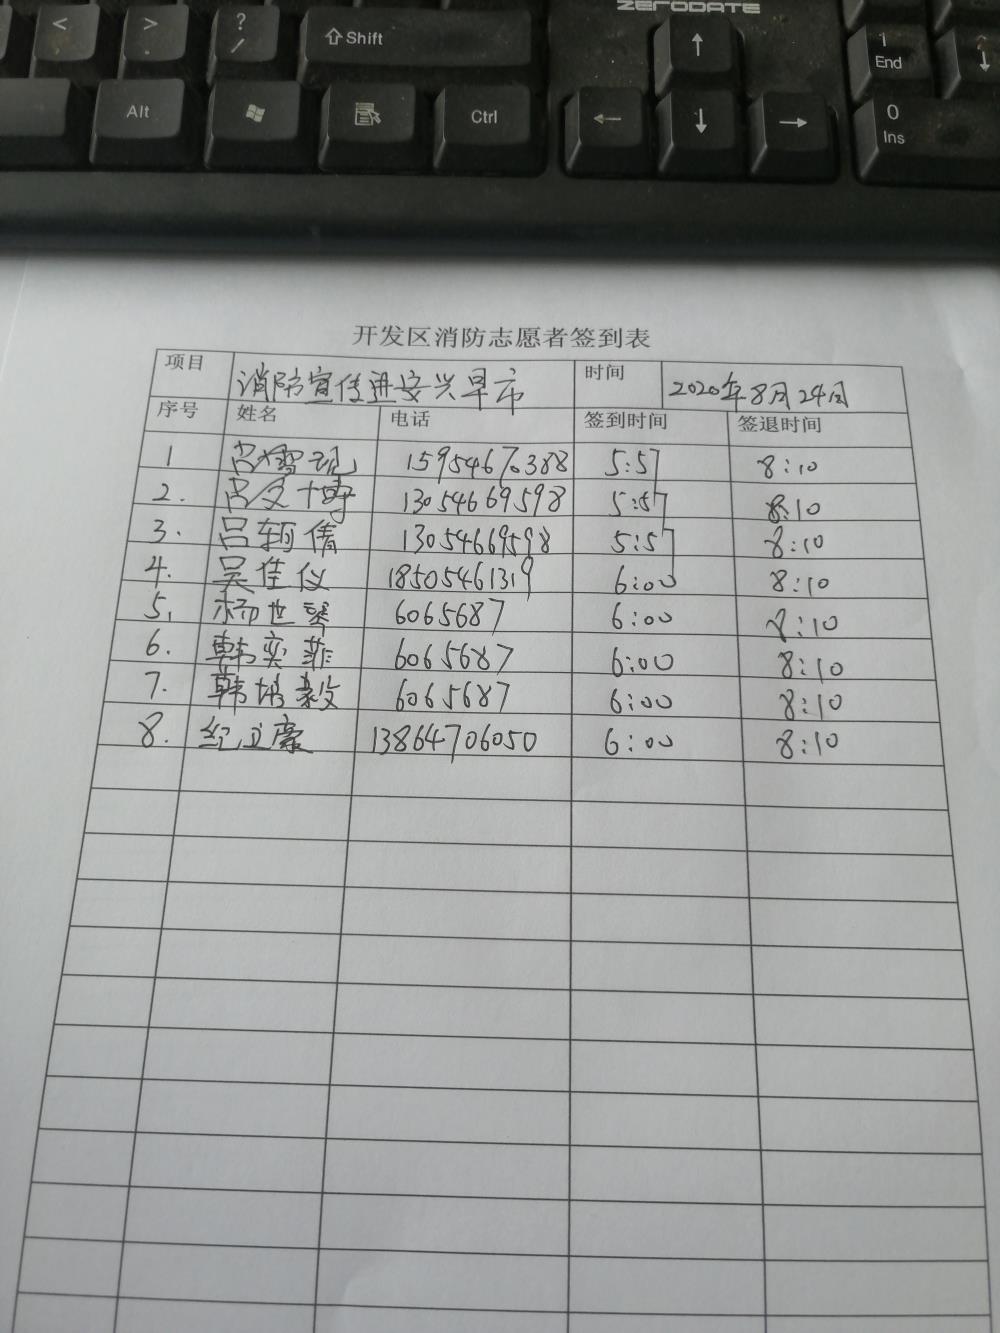 ZERODATE
< > ? / ⇧ Shift ↑ 1 End ↓
Alt Ctrl ← ↓ → 0 Ins
开发区消防志愿者签到表
项目 消防宣传进安兴早市 时间 2020年8月24日
序号 姓名 电话 签到时间 签退时间
1 吕雪 15954670388 5:57 8:10
2. 吕文博 13054669598 5:57 8:10
3. 吕轲倩 13054669598 5:57 8:10
4. 吴佳仪 18505461319 6:00 8:10
5. 杨世琴 6065687 6:00 8:10
6. 韩奕菲 6065687 6:00 8:10
7. 韩毅 6065687 6:00 8:10
8. 纪立豪 13864706050 6:00 8:10